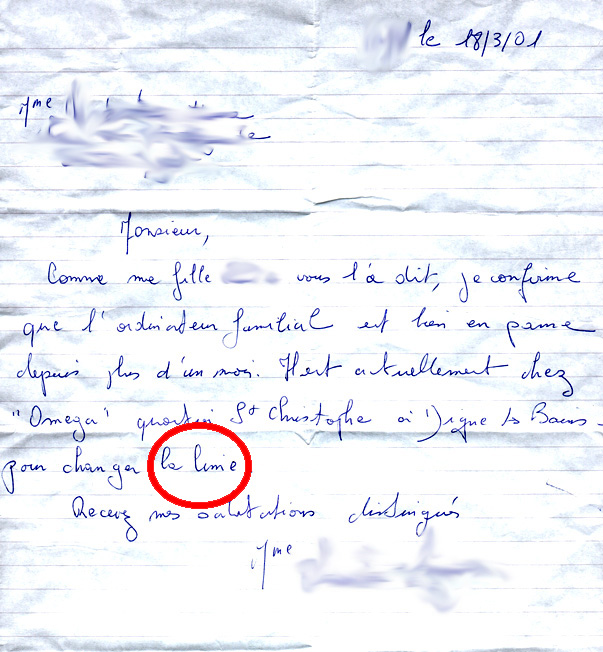 le 18/3/01
Mme
Monsieur,
Comme ma fille vous l'a dit, je confirme
que l'ordinateur familial est bien en panne
depuis plus d'un mois. Il est actuellement chez
"Omega" quartier St Christophe à Digne les Bains
pour changer la limie
Recevez mes salutations distinguées
Mme